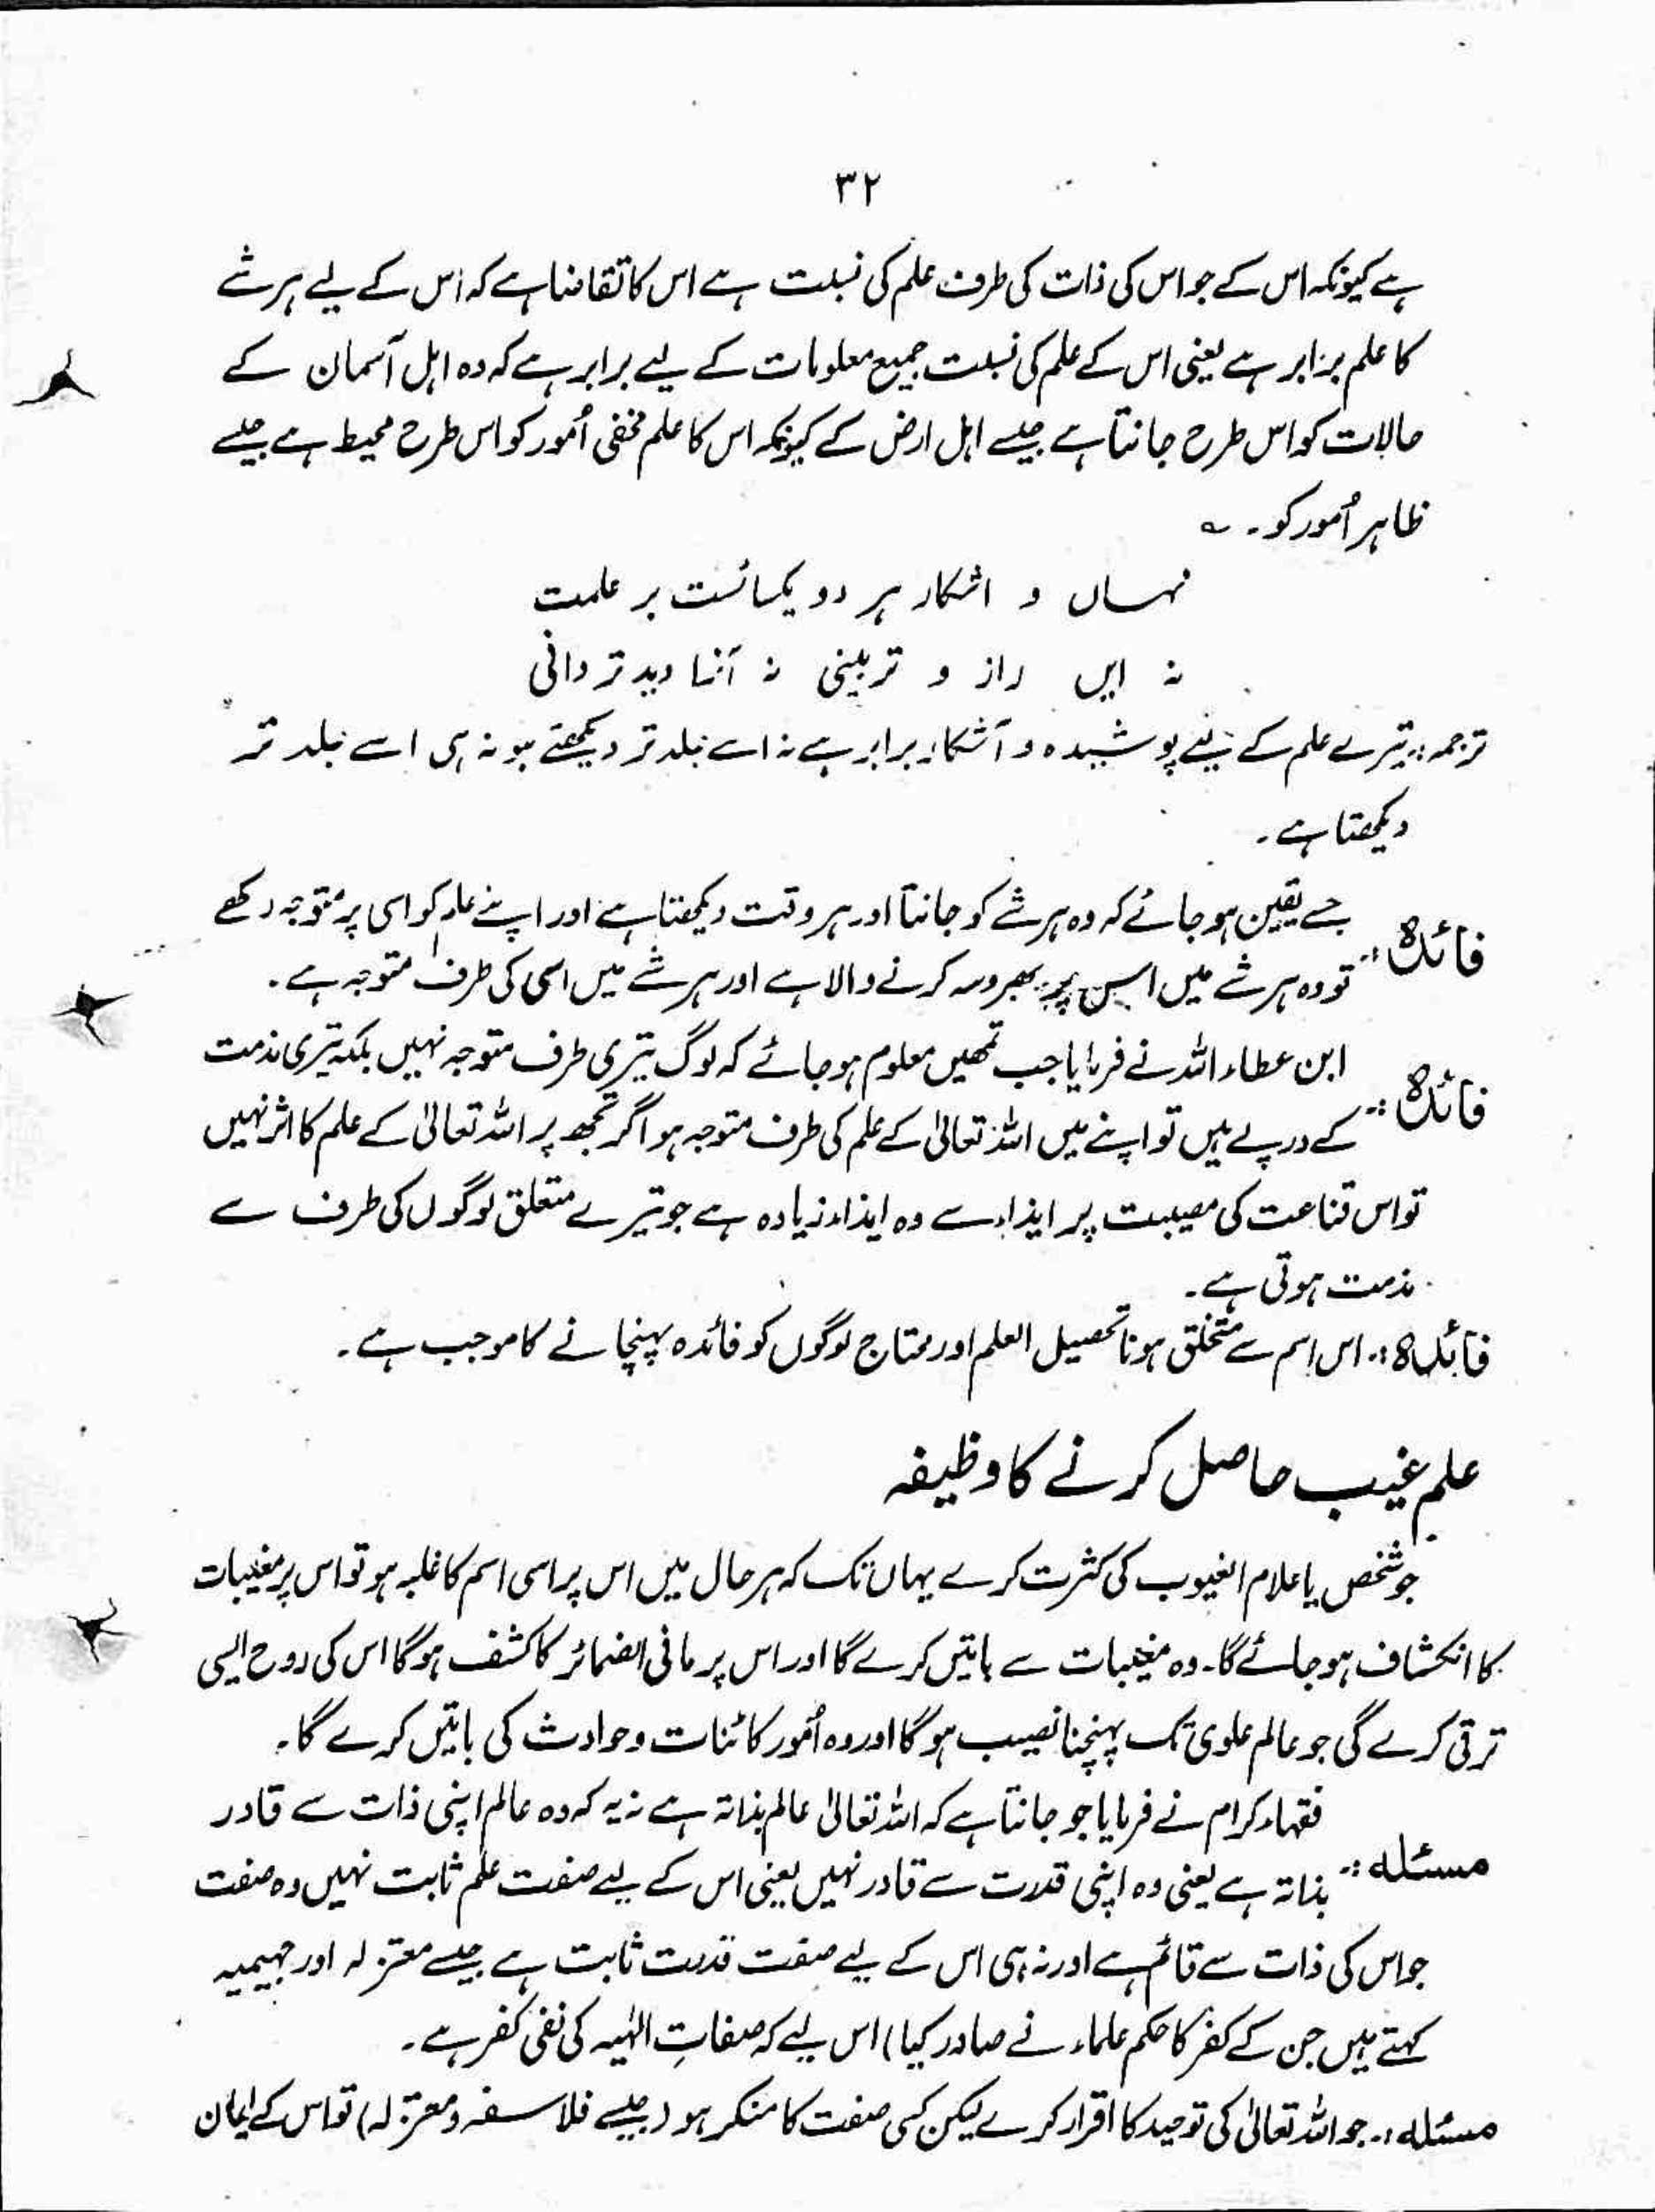 ۳۲
ہے کیونکہ اس کے جو اس کی ذات کی طرف علم کی نسبت ہے اس کا تقاضا ہے کہ اس کے لیے ہر شے
کا علم برابر ہے یعنی اس کے علم کی نسبت جمیع معلومات کے لیے برابر ہے کہ وہ اہل آسمان کے
حالات کو اس طرح جانتا ہے جیسے اہل ارض کے کیونکہ اس کا علم مخفی اُمور کو اس طرح محیط ہے جیسے
ظاہر اُمور کو ۔ ؎
نہاں و اشکار ہر دو یکسانست بر علمت
نہ ایں راز و تربینی نہ آنرا دید تر دانی
ترجمہ :۔ تیرے علم کے لیے پوشیدہ و آشکار برابر ہے نہ اسے جلد تر دیکھتے ہو نہ ہی اسے جلد تر
دیکھتا ہے ۔
جسے یقین ہو جائے کہ وہ ہر شے کو جانتا اور ہر وقت دیکھتا ہے اور اپنے علم کو اسی پر متوجہ رکھے
فائدہ :۔
تو وہ ہر شے میں اسی پر بھروسہ کرنے والا ہے اور ہر شے میں اسی کی طرف متوجہ ہے ۔
ابن عطاء اللہ نے فرمایا جب تمھیں معلوم ہو جائے کہ لوگ تیری طرف متوجہ نہیں بلکہ تیری مذمت
فائدہ :۔
کے درپے ہیں تو اپنے میں اللہ تعالیٰ کے علم کی طرف متوجہ ہو اگر تجھ پر اللہ تعالیٰ کے علم کا اثر نہیں
تو اس قناعت کی مصیبت پر ایذاء سے وہ ایذاء زیادہ ہے جو تیرے متعلق لوگوں کی طرف سے
مذمت ہوتی ہے ۔
فائدہ :۔ اس اسم سے متخلق ہونا تحصیل العلم اور محتاج لوگوں کو فائدہ پہنچانے کا موجب ہے ۔
علم غیب حاصل کرنے کا وظیفہ
جو شخص یا علام الغیوب کی کثرت کرے یہاں تک کہ ہر حال میں اس پر اسی اسم کا غلبہ ہو تو اس پر مغیبات
کا انکشاف ہو جائے گا ۔ وہ مغیبات سے باتیں کرے گا اور اس پر مافی الضمائر کا کشف ہوگا اس کی روح ایسی
ترقی کرے گی جو عالم علوی تک پہنچنا نصیب ہو گا اور وہ اُمور کائنات و حوادث کی باتیں کرے گا ۔
فقہاء کرام نے فرمایا جو جانتا ہے کہ اللہ تعالیٰ عالم بذاتہ ہے نہ یہ کہ وہ عالم اپنی ذات سے قادر
مسئلہ :۔
بذاتہ ہے یعنی وہ اپنی قدرت سے قادر نہیں یعنی اس کے لیے صفت علم ثابت نہیں وہ صفت
جو اس کی ذات سے قائم ہے اور نہ ہی اس کے لیے صفت قدرت ثابت ہے جیسے معتزلہ اور جہیمیہ
کہتے ہیں جن کے کفر کا حکم علماء نے صادر کیا) اس لیے کہ صفاتِ الٰہیہ کی نفی کفر ہے ۔
مسئلہ :۔ جو اللہ تعالیٰ کی توحید کا اقرار کرے لیکن کسی صفت کا منکر ہو (جیسے فلاسفہ و معتزلہ) تو اس کے ایمان